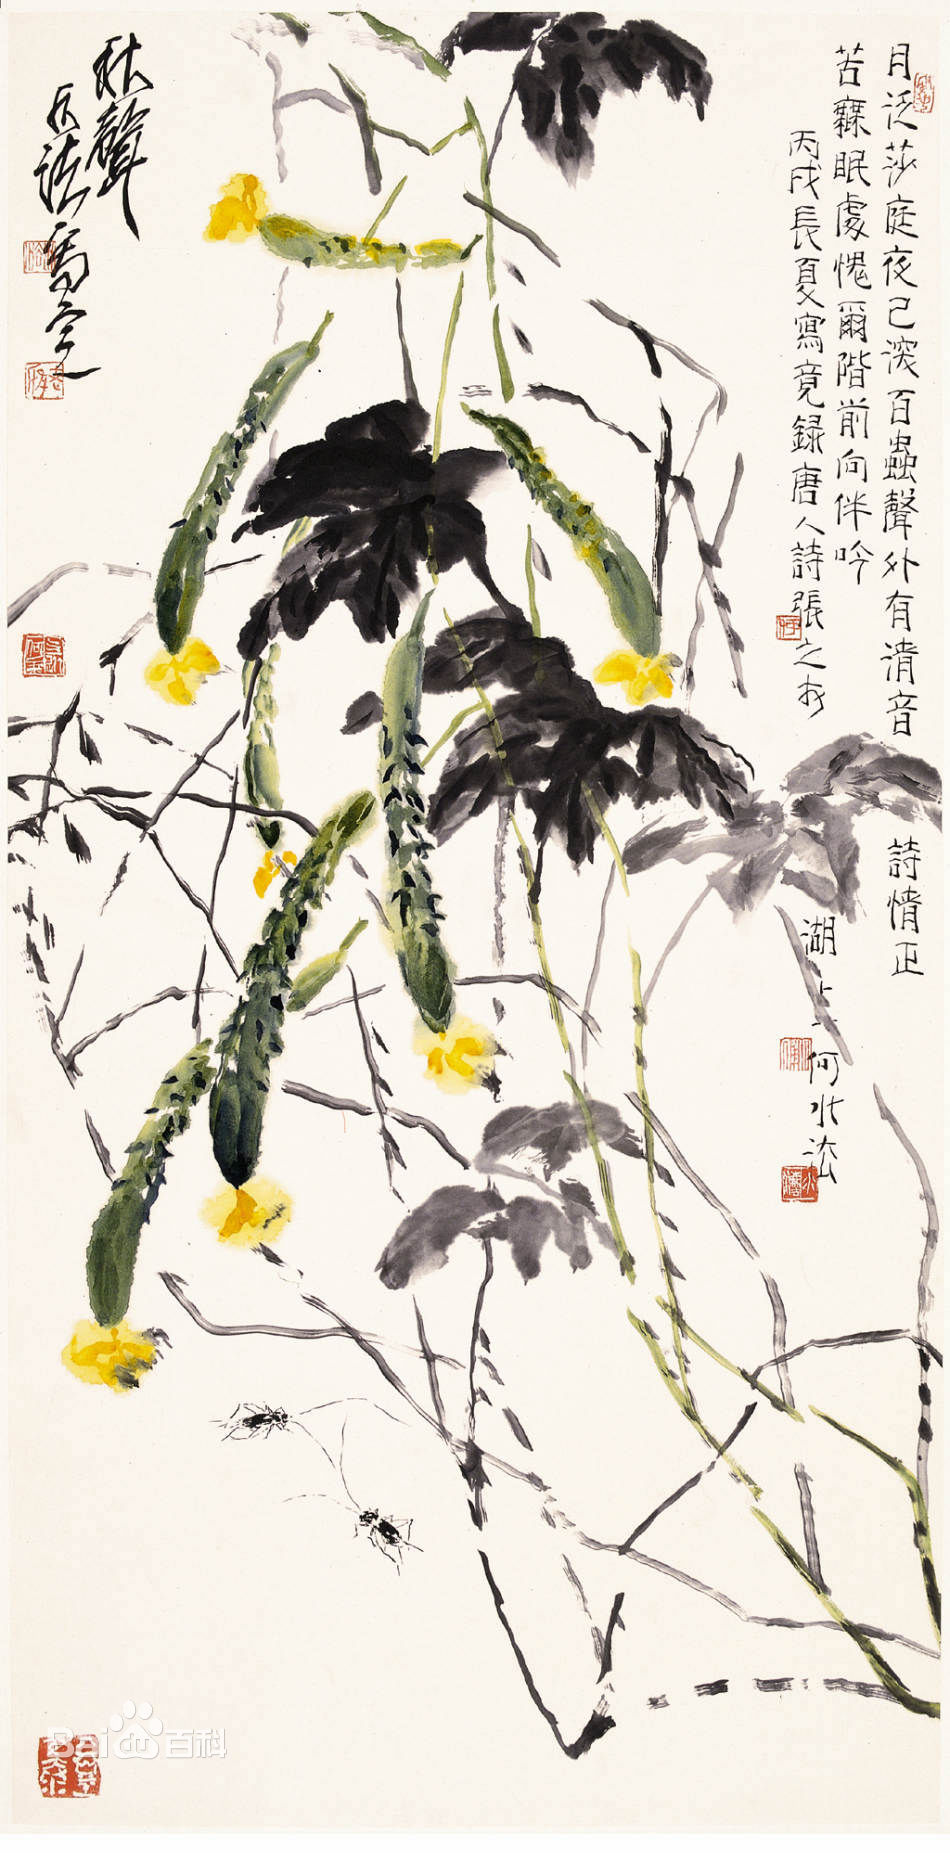 月泛莎庭夜已深百蟲聲外有清音
詩情正
苦寐眠處愧爾階前向伴吟
丙戌長夏寫竟錄唐人詩張之
湖上何水法
秋聲
水法寫之
Bai百科